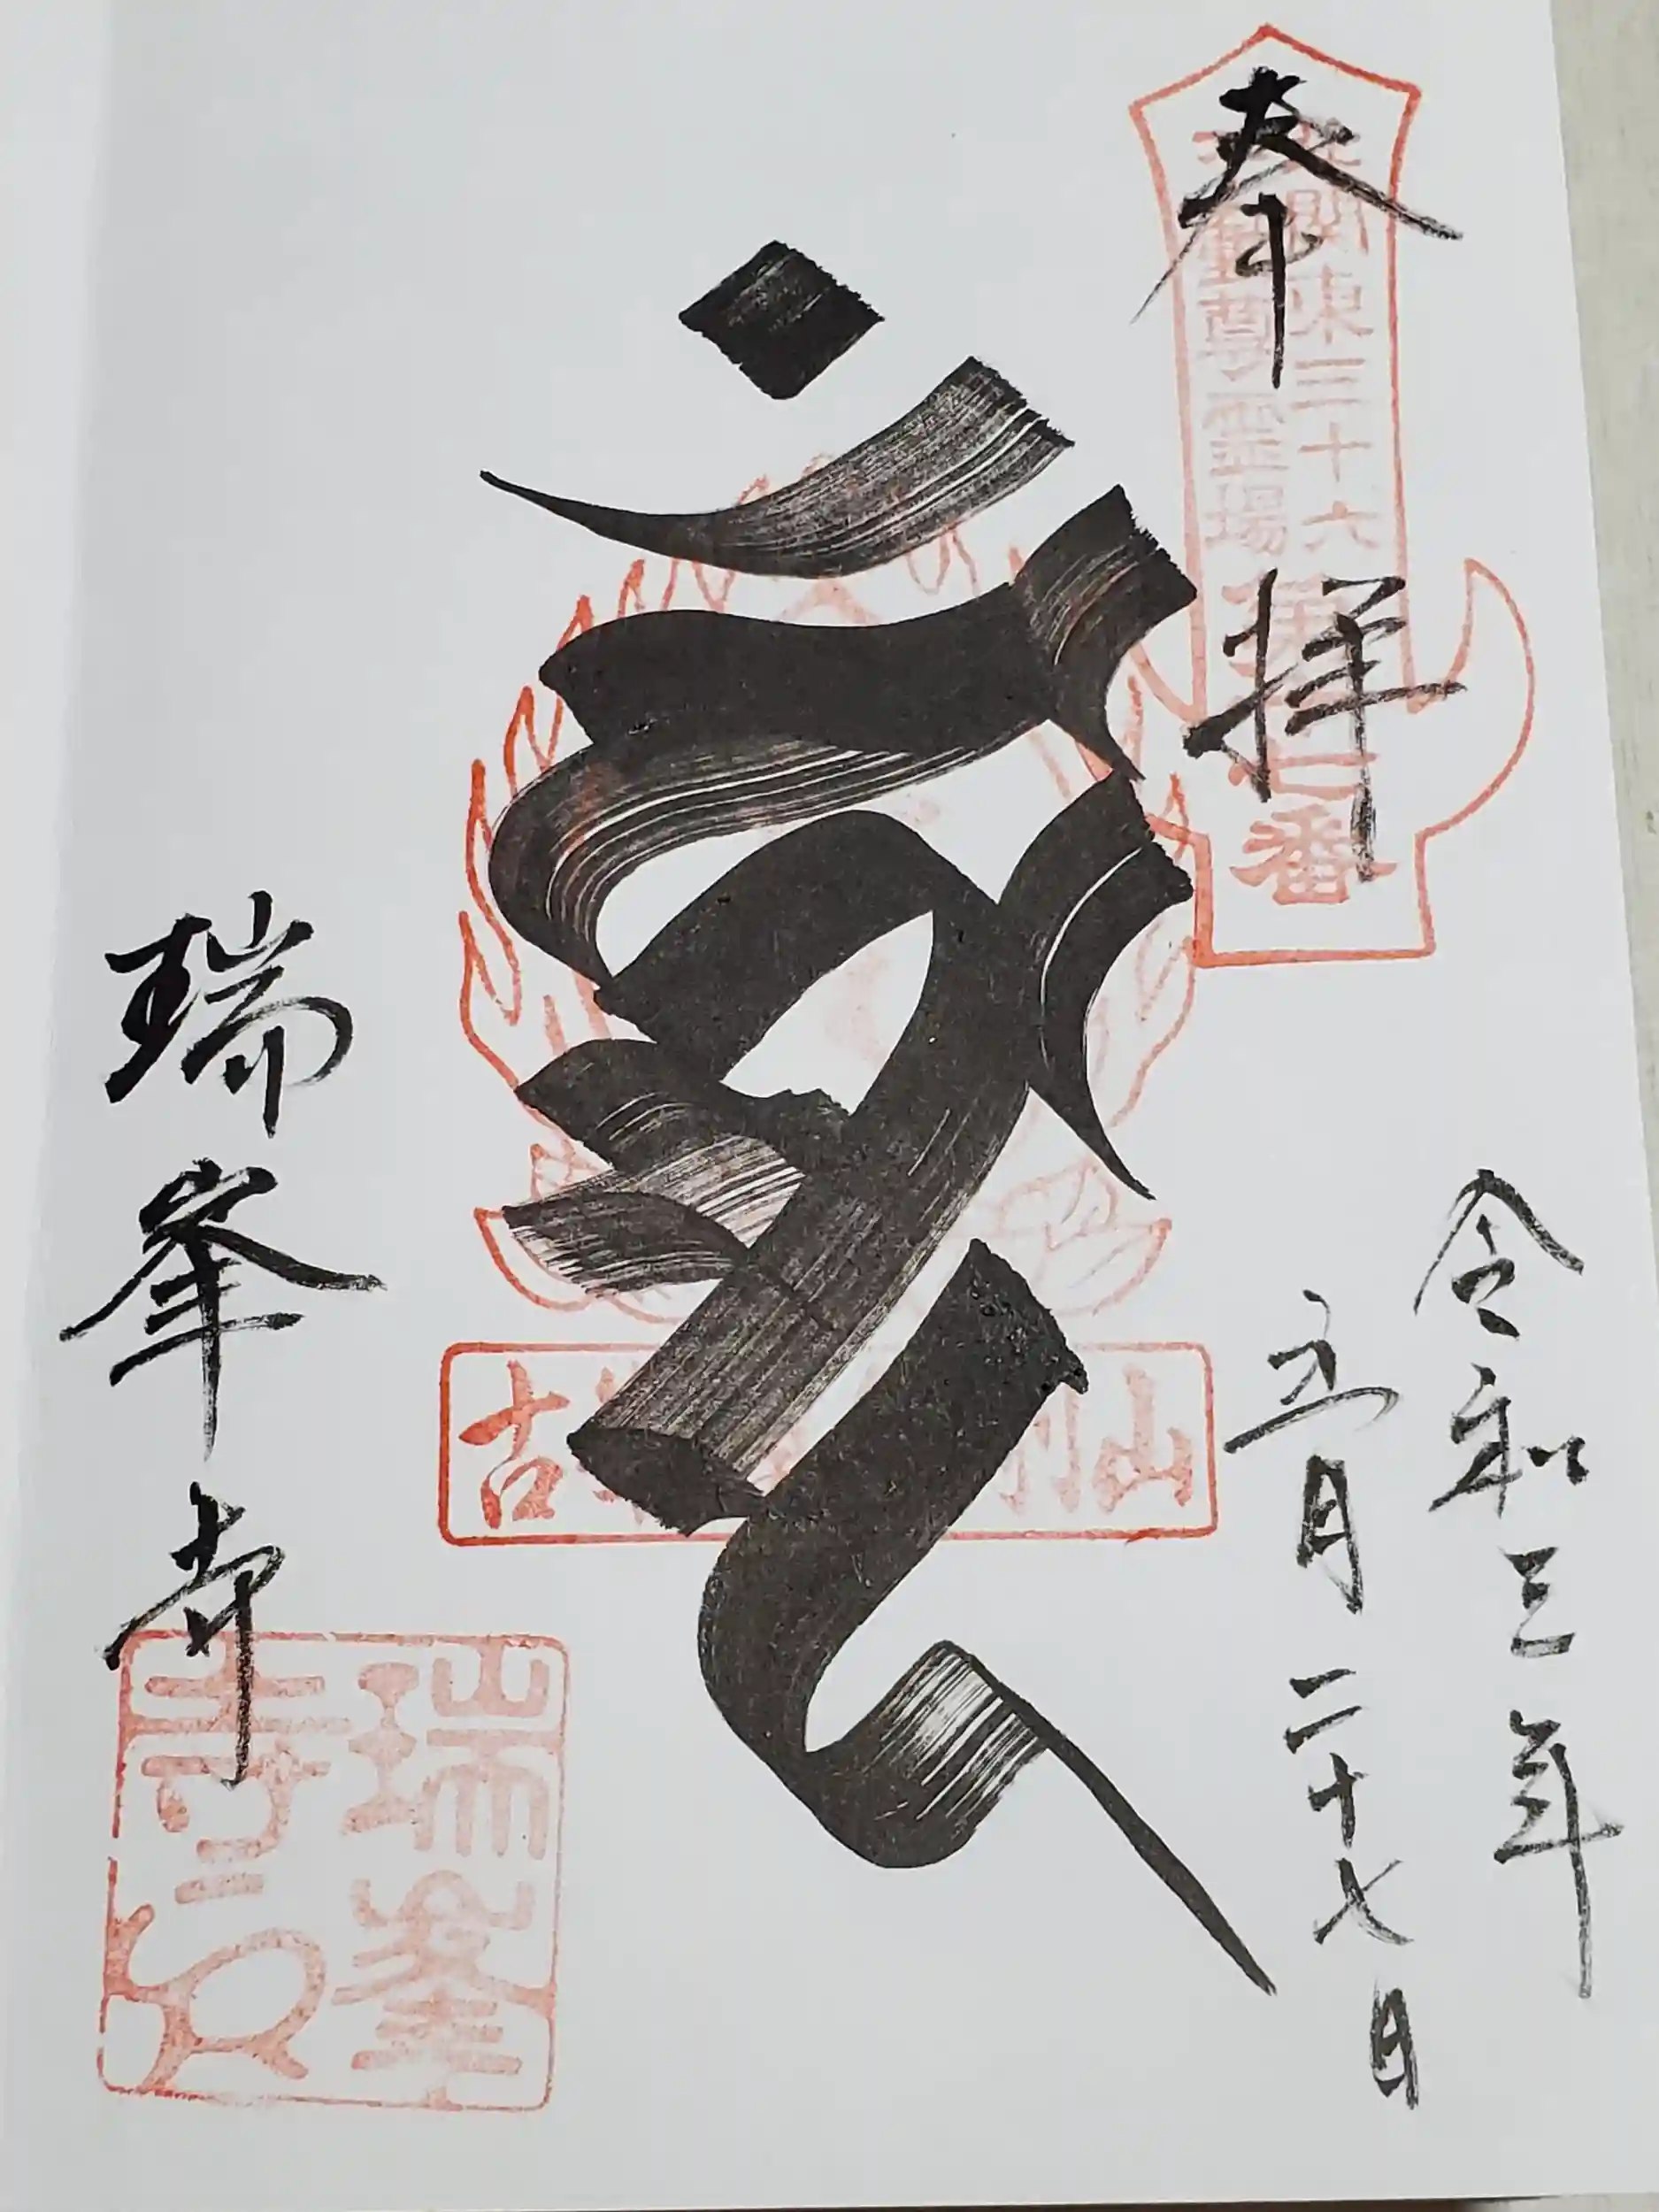 奉拝
北関東三十六
不動尊霊場
番
令和三年
五月二十七日
古 別山
瑞峯寺
瑞峯
寺